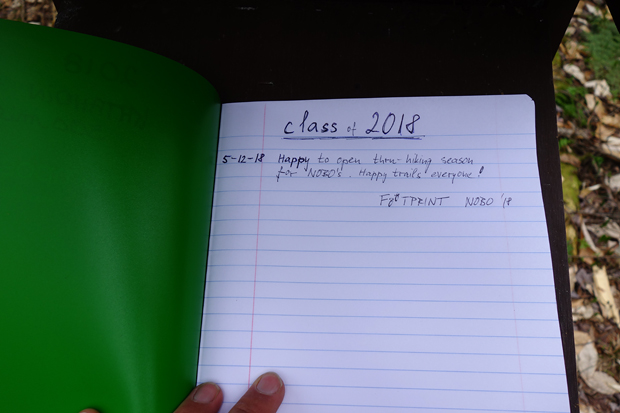 class of 2018
5-12-18 Happy to open thru-hiking season
for NOBO's. Happy trails everyone!
TPRINT NOBO '18